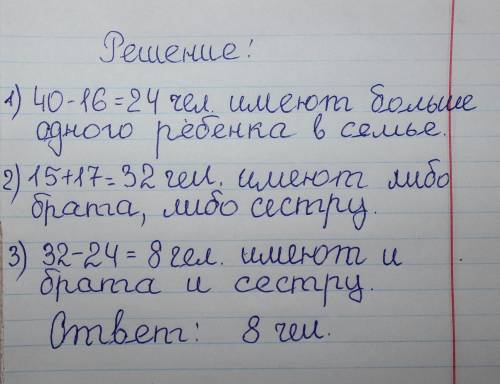 Решение!
1) 40-16=24 чел. имеют больше
одного ребенка в семье.
2) 15+17=32 чел. имеют либо
брата, либо сестру.
3) 32-24=8 чел. имеют и
брата и сестру.
Ответ: 8 чел.